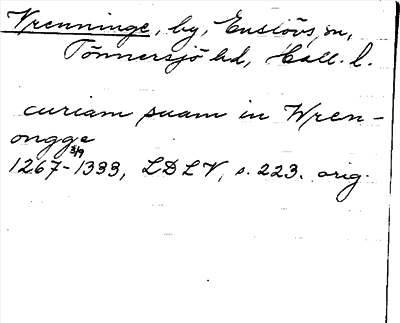 Vrenninge, by, Enslövs sn,
Tönnersjö hd, Hall. l.
curiam suam in Wren-
ongge
1267-1333, LDLV, s. 223. orig.